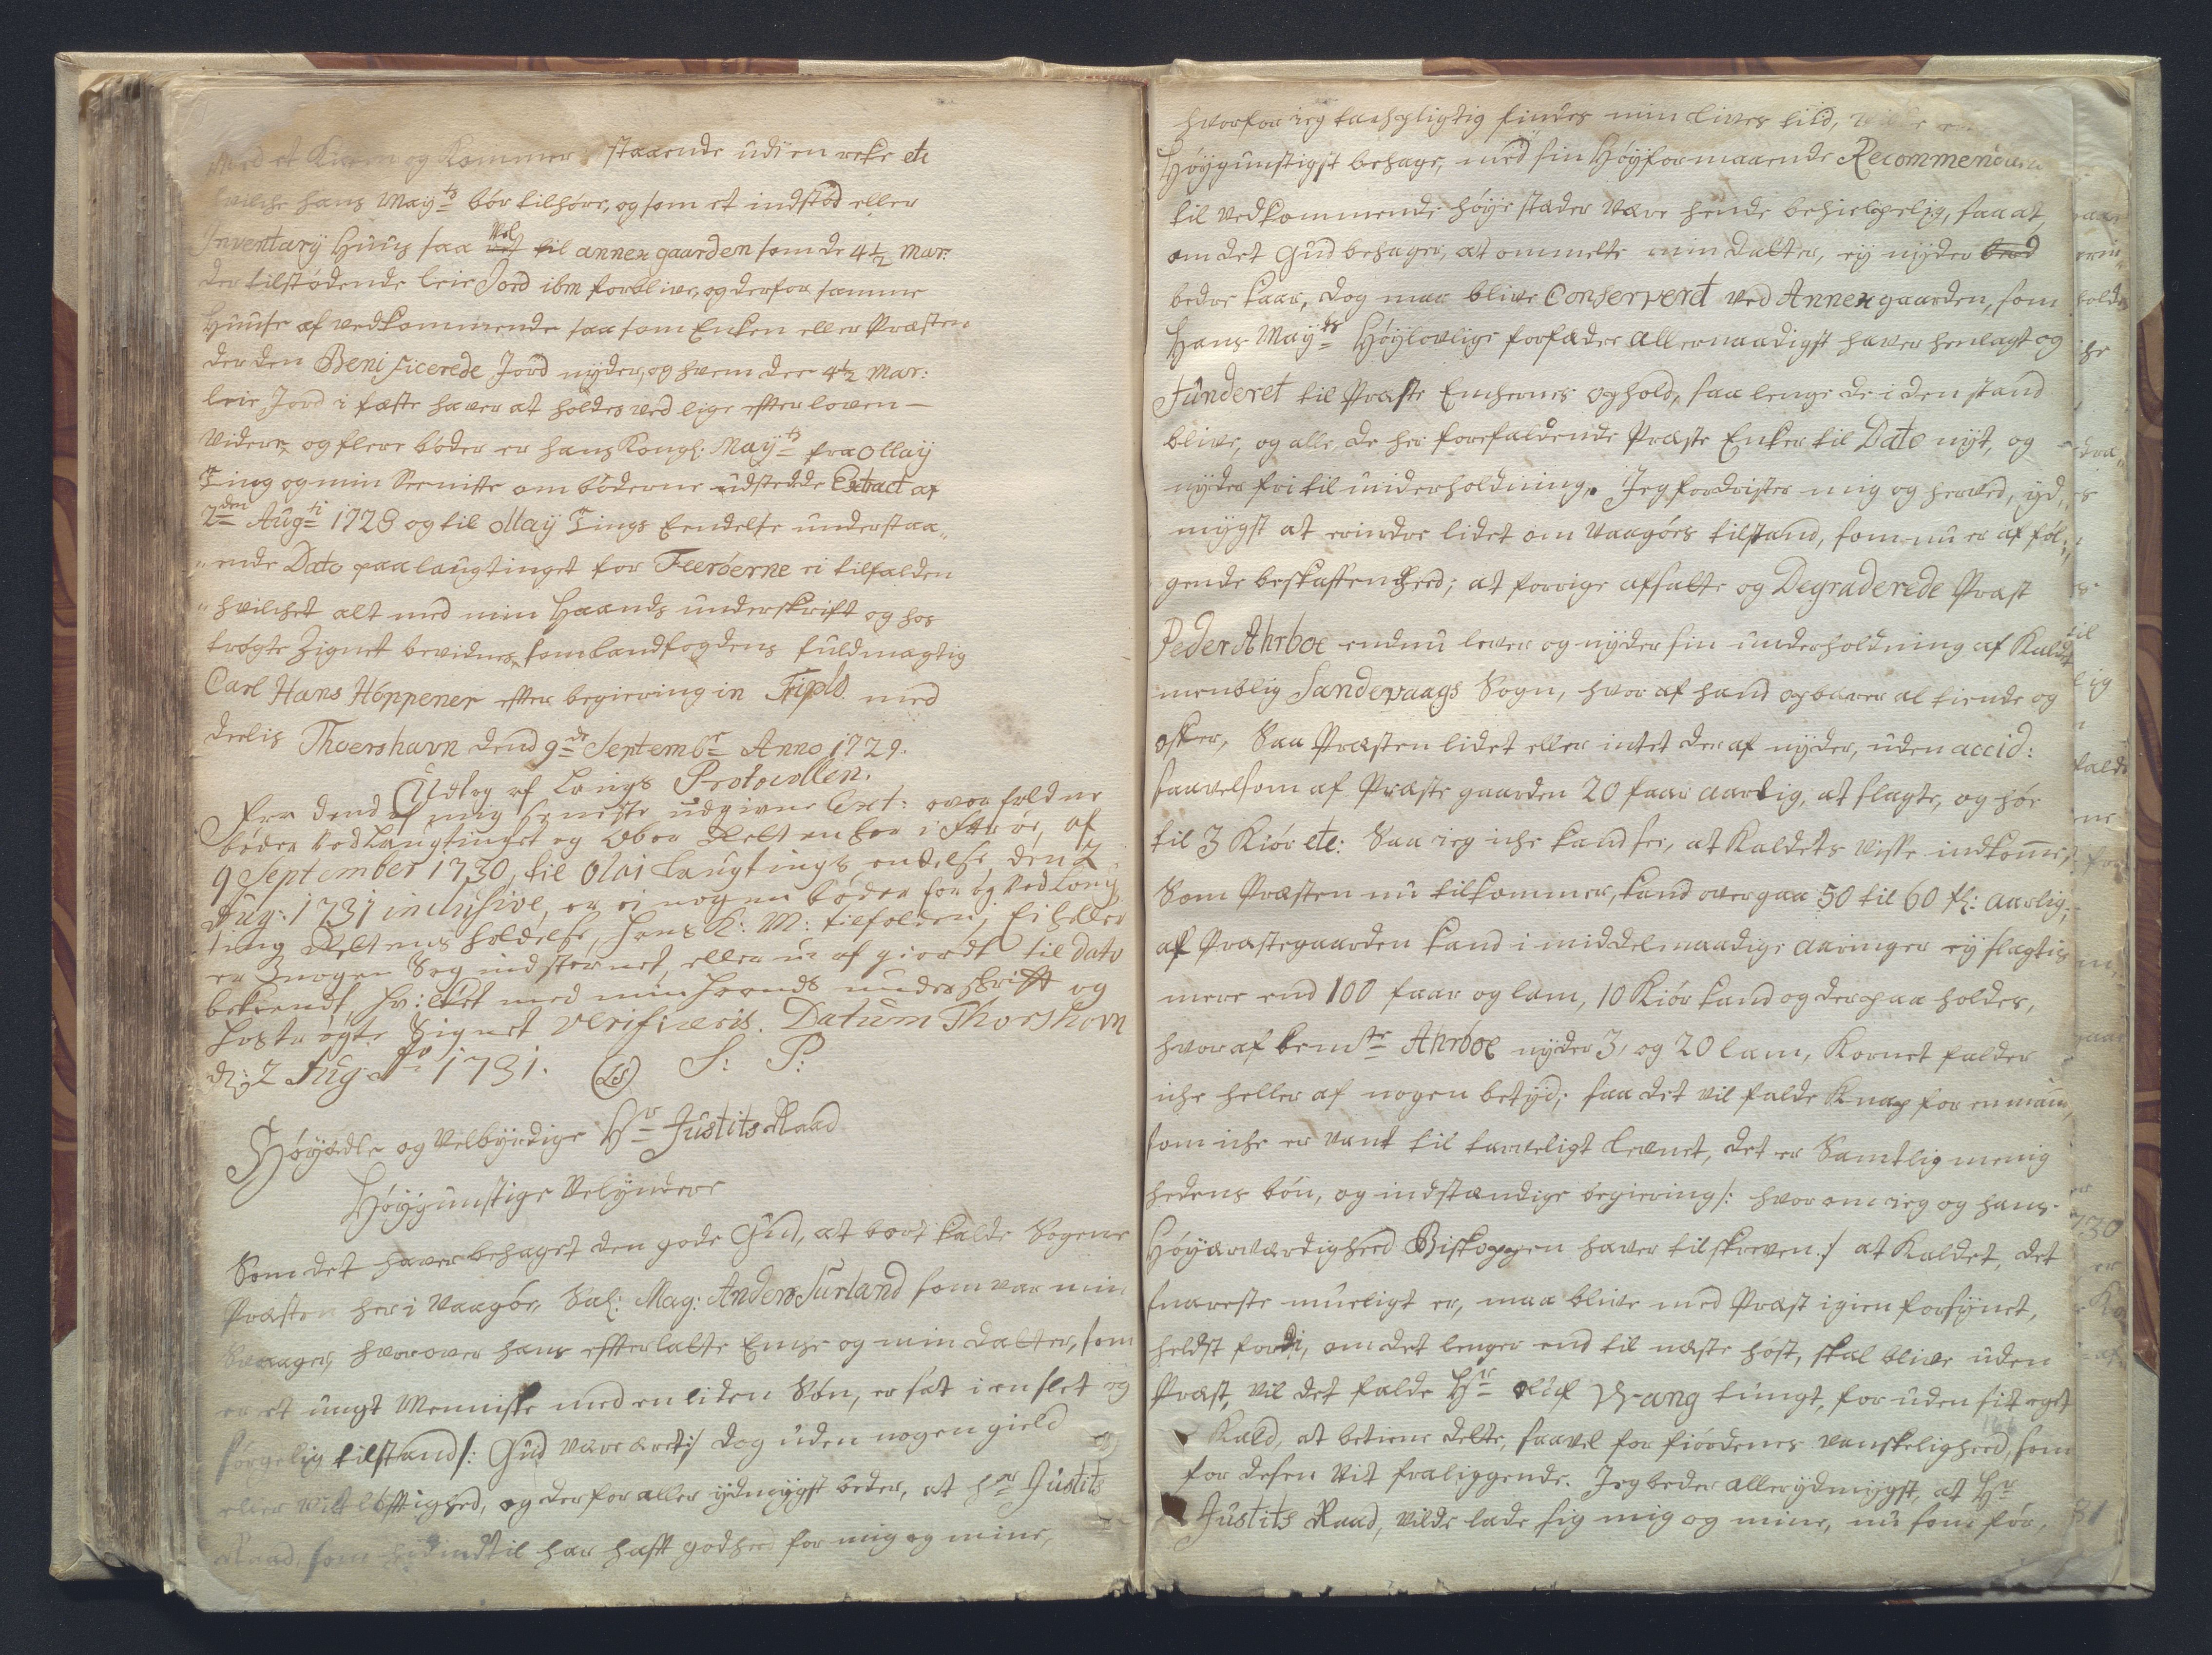 Med et Kiøken og Kammer staaende udi en reke etc
hvilche hans May.ts bør tilhøre, og som et indstød eller
Inventarij Huus saa Vel til annex gaarden som de 4½ Mar:
der tilstødende leie Jord ibm forblive, og derfor samme
Huuse af vedkommende saa som Enken eller Præsten
der den Beneficerede Jord nyder, og hvem der 4½ Mar:
leie Jord i fæste haver at holdes ved lige efter loven —
Videre, og flere bøder er hans Kongl: May.ts fra Ollaÿ
Ting og min Seeniste om bøderne udstedde Extract af
2den Aug.ti 1728 og til Ollaÿ Tings Eendelse understaa„
„ende Dato paa laugtinget for Feeröerne ei tilfalden
„hvilchet alt med min Haands underskrift og hos
trögte Zignet bevidnes, som Landfogdens fuldmagtig
Carl Hans Höppener efter begiering in Triplo med
deelis Thoershavn dend 9de Septembr Anno 1729.
Udtog af Laugs Protocollen.
Fra dend af mig seneste udgivne Ext: over faldne
bøder ved Laugtinget og Over Retten her i Færøe, af
9 September 1730, til Olai Laugtings endelse, den 2
Aug: 1731 inclusive, er ei nogen bøder for og ved Laug
ting Rettens holdelse, Hans K: M: tilfalden; Ei heller
er nogen Sag indstevnet, eller er af giordt til dato
bekiendt, hvilket med min haands underskrifft og
hostrøgte Signet verificeris. Datum Thorshavn
d: 2 Aug.sto 1731. (LS) S: P:
Höyædle og Velbyrdige Hr Justits Raad
Höygunstige Velyndere
Som det haver behaget den gode Gud, at bort kalde Sogene
Præsten her i Vaagöe, Sal: Mag: Anders Jurland som var min
Svaager, hvorover hans efterlatte Enche og min datter, som
er et ungt Menniske med en liden Søn, er sat i en slet og
sørgelig tilstand /: Gud være æret :/ dog uden nogen gield
eller vitløftighed, og derfor aller ydmygst beder, at Hr Justits
Raad, som hidindtil har hafft godhed for mig og mine,
hvorfor ieg tachpligtig findes min Lives tiid, vilde
Höygunstigst behage, med sin Höyformaaende Recommendation
til Vedkommende höye stæder være hende behielpelig, saa at
om det Gud behager, at ommelte min datter, ey nyder
bedre kaar, dog maa blive Conservert ved Annex gaarden, som
Hans May.ts Höylovlige forfædre allernaadigst haver henlagt og
Funderet til Præste Enchernes Ophold, saa lenge de i den stand
blive, og alle de her forefaldende Præste Enker til Dato nyt, og
nyder fri til underholdning. Jeg fordrister mig og herved, yd„
mygst at erindre lidet om Vaagöes tilstand, som nu er af føl„
gende beskaffenheed; at forrige afsatte og Degraderede Præst
Peder Ahrboe endnu lever og nyder sin underholdning af Kaldet
menblig Sandevaags Sogn, hvor af hand opbærer al tiende og
offer, Saa Præsten lidet eller intet deraf nyder, uden accid:
saavelsom af Præste gaarden 20 faar aarlig, at slagte, og höe
til 3 Kiör etc: Saa ieg iche kand see, at Kaldets visse indkomme,
Som Præsten nu tilkommer, kand overgaa 50 til 60 fl: aarlig;
af Præstegaarden kand i middelmaadige aaringer ey slagtis
mere end 100 faar og lam, 10 Kiör kand og der paa holdes,
hvoraf bemte Ahrboe nyder 3, og 20 lam, Kornet falder
iche heller af nogen betyd; saa det vil falde Knap for en mand,
som iche er vant til tarveligt Levnet, det er Samtlig menig
hedens bön, og indstændige begiering /: hvor om ieg og hans
Höyærværdigheed Biskoppen haver tilskreven :/ at Kaldet, det
snareste mueligt er, maa blive med Præst igien forsynet,
heldst fordi, om det lenger end til næste høst, skal blive uden
Præst, vil det falde Hr Oluf Wrang tungt, for uden sit eget
Kald, at betiene dette, saavel for fiordenes vanskeligheed, som
for desen Vit fraliggende. Jeg beder allerydmygst, at Hr
Justits Raad, vilde lade sig mig og mine, nu som før,